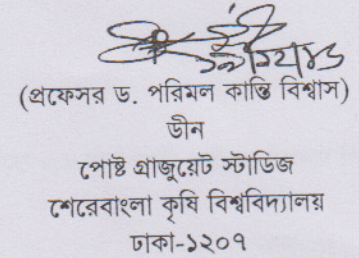 (প্রফেসর ড. পরিমল কান্তি বিশ্বাস)
ডীন
পোষ্ট গ্রাজুয়েট স্টাডিজ
শেরেবাংলা কৃষি বিশ্ববিদ্যালয়
ঢাকা-১২০৭